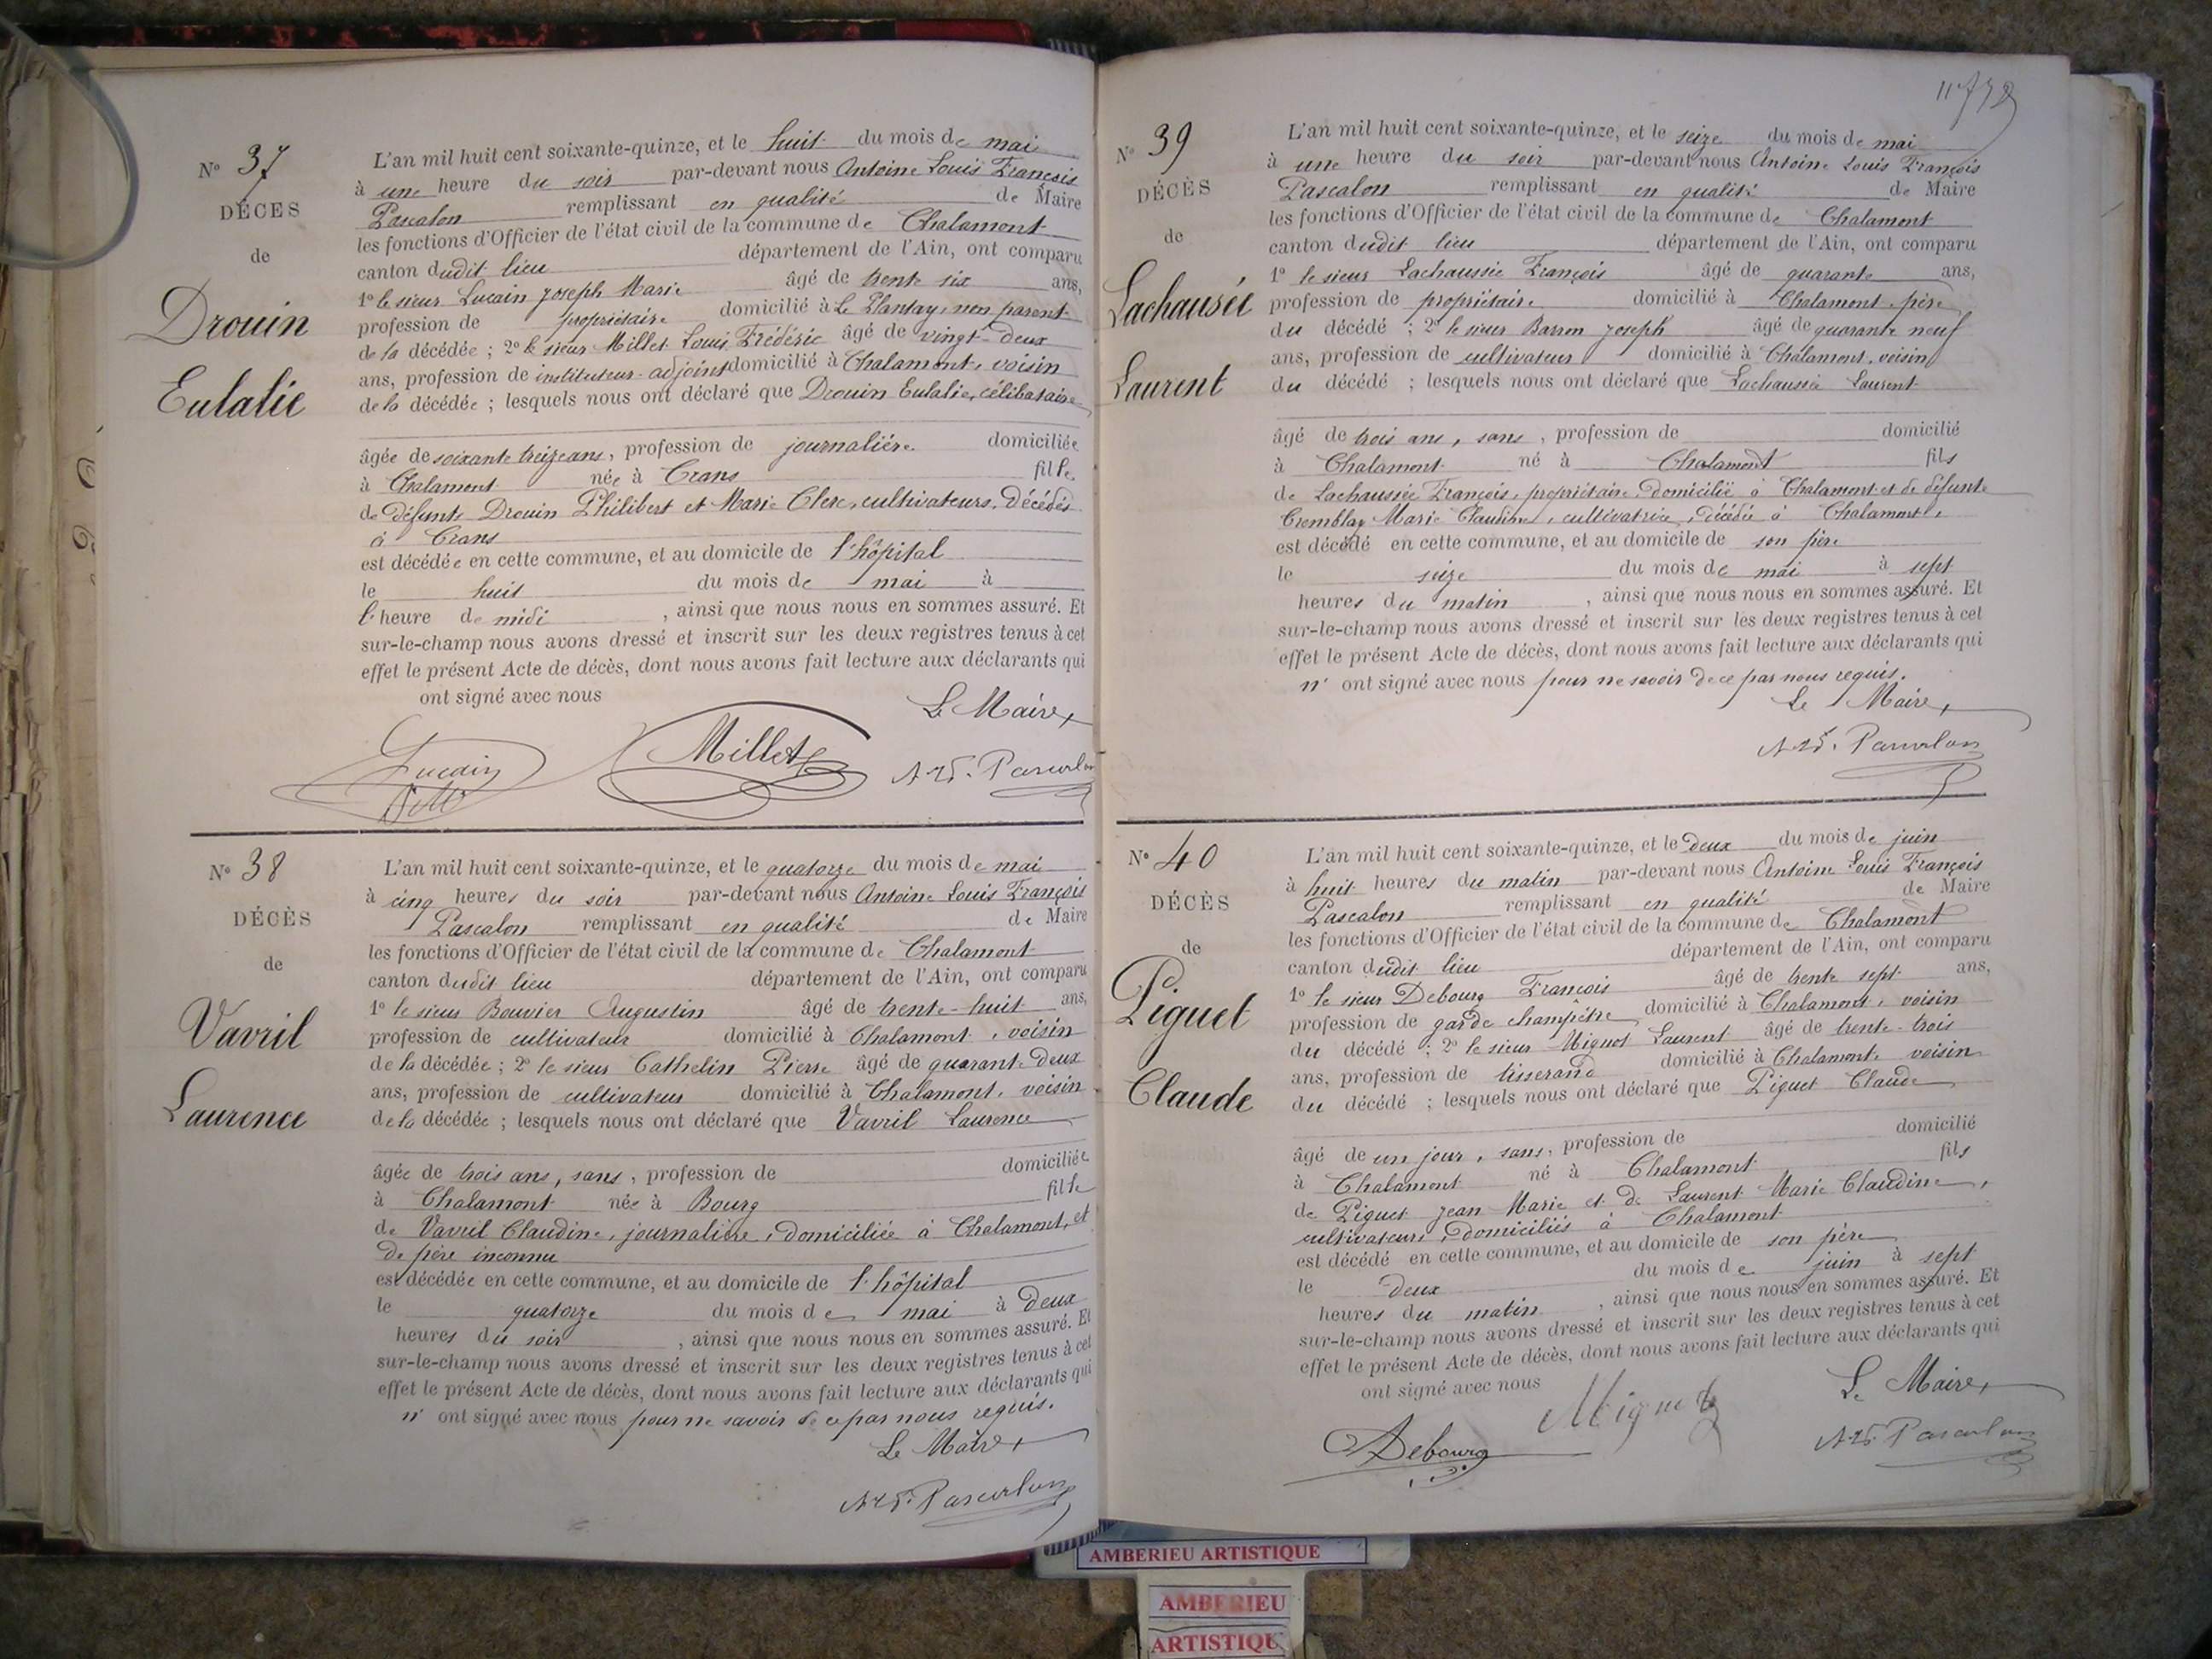 N° 37
DÉCÈS
de
Drouin
Eulalie
L'an mil huit cent soixante-quinze, et le huit du mois de mai
à une heure du soir par-devant nous Antoine Louis François
Pascalon remplissant en qualité de Maire
les fonctions d'Officier de l'état civil de la commune de Chalamont
canton dudit lieu département de l'Ain, ont comparu
1° le sieur Lucain Joseph Marie âgé de trente six ans,
profession de propriétaire domicilié à Le Plantay, non parent
de la décédée ; 2° le sieur Millet Louis Frédéric âgé de vingt-deux
ans, profession de instituteur-adjoint domicilié à Chalamont, voisin
de la décédée ; lesquels nous ont déclaré que Drouin Eulalie, célibataire
âgée de soixante treize ans, profession de journalière domiciliée
à Chalamont née à Crans fille
de défunts Drouin Philibert et Marie Clerc, cultivateurs, décédés
à Crans
est décédée en cette commune, et au domicile de l'hôpital
le huit du mois de mai à
l'heure de midi , ainsi que nous nous en sommes assuré. Et
sur-le-champ nous avons dressé et inscrit sur les deux registres tenus à cet
effet le présent Acte de décès, dont nous avons fait lecture aux déclarants qui
ont signé avec nous
Le Maire,
Lucain
Millet
Pascalon
N° 38
DÉCÈS
de
Vavril
Laurence
L'an mil huit cent soixante-quinze, et le quatorze du mois de mai
à cinq heures du soir par-devant nous Antoine Louis François
Pascalon remplissant en qualité de Maire
les fonctions d'Officier de l'état civil de la commune de Chalamont
canton dudit lieu département de l'Ain, ont comparu
1° le sieur Bouvier Augustin âgé de trente-huit ans,
profession de cultivateur domicilié à Chalamont, voisin
de la décédée ; 2° le sieur Cathelin Pierre âgé de quarante-deux
ans, profession de cultivateur domicilié à Chalamont, voisin
de la décédée ; lesquels nous ont déclaré que Vavril Laurence
âgée de trois ans, sans, profession de domiciliée
à Chalamont née à Bourg fille
de Vavril Claudine, journalière, domiciliée à Chalamont, et
de père inconnu
est décédée en cette commune, et au domicile de l'hôpital
le quatorze du mois de mai à deux
heures du soir , ainsi que nous nous en sommes assuré. Et
sur-le-champ nous avons dressé et inscrit sur les deux registres tenus à cet
effet le présent Acte de décès, dont nous avons fait lecture aux déclarants qui
n' ont signé avec nous pour ne savoir de ce par nous requis.
Le Maire,
Pascalon
N° 39
DÉCÈS
de
Lachausée
Laurent
L'an mil huit cent soixante-quinze, et le seize du mois de mai
à une heure du soir par-devant nous Antoine Louis François
Pascalon remplissant en qualité de Maire
les fonctions d'Officier de l'état civil de la commune de Chalamont
canton dudit lieu département de l'Ain, ont comparu
1° le sieur Lachaussée François âgé de quarante ans,
profession de propriétaire domicilié à Chalamont, père
du décédé ; 2° le sieur Barron Joseph âgé de quarante neuf
ans, profession de cultivateur domicilié à Chalamont, voisin
du décédé ; lesquels nous ont déclaré que Lachaussée Laurent
âgé de trois ans, sans, profession de domicilié
à Chalamont né à Chalamont fils
de Lachaussée François, propriétaire domicilié à Chalamont et de défunte
Tremblay Marie Claudine, cultivatrice, décédée à Chalamont,
est décédé en cette commune, et au domicile de son père
le seize du mois de mai à sept
heures du matin , ainsi que nous nous en sommes assuré. Et
sur-le-champ nous avons dressé et inscrit sur les deux registres tenus à cet
effet le présent Acte de décès, dont nous avons fait lecture aux déclarants qui
n' ont signé avec nous pour ne savoir de ce par nous requis.
Le Maire,
Pascalon
N° 40
DÉCÈS
de
Piguet
Claude
L'an mil huit cent soixante-quinze, et le deux du mois de juin
à huit heures du matin par-devant nous Antoine Louis François
Pascalon remplissant en qualité de Maire
les fonctions d'Officier de l'état civil de la commune de Chalamont
canton dudit lieu département de l'Ain, ont comparu
1° le sieur Debourg François âgé de trente sept ans,
profession de garde champêtre domicilié à Chalamont, voisin
du décédé ; 2° le sieur Mignot Laurent âgé de trente-trois
ans, profession de tisserand domicilié à Chalamont, voisin
du décédé ; lesquels nous ont déclaré que Piguet Claude
âgé de un jour, sans, profession de domicilié
à Chalamont né à Chalamont fils
de Piguet Jean Marie et de Laurent Marie Claudine,
cultivateurs domiciliés à Chalamont
est décédé en cette commune, et au domicile de son père
le deux du mois de juin à sept
heures du matin , ainsi que nous nous en sommes assuré. Et
sur-le-champ nous avons dressé et inscrit sur les deux registres tenus à cet
effet le présent Acte de décès, dont nous avons fait lecture aux déclarants qui
ont signé avec nous
Le Maire,
Debourg
Mignot
Pascalon
AMBERIEU ARTISTIQUE
AMBERIEU
ARTISTIQUE